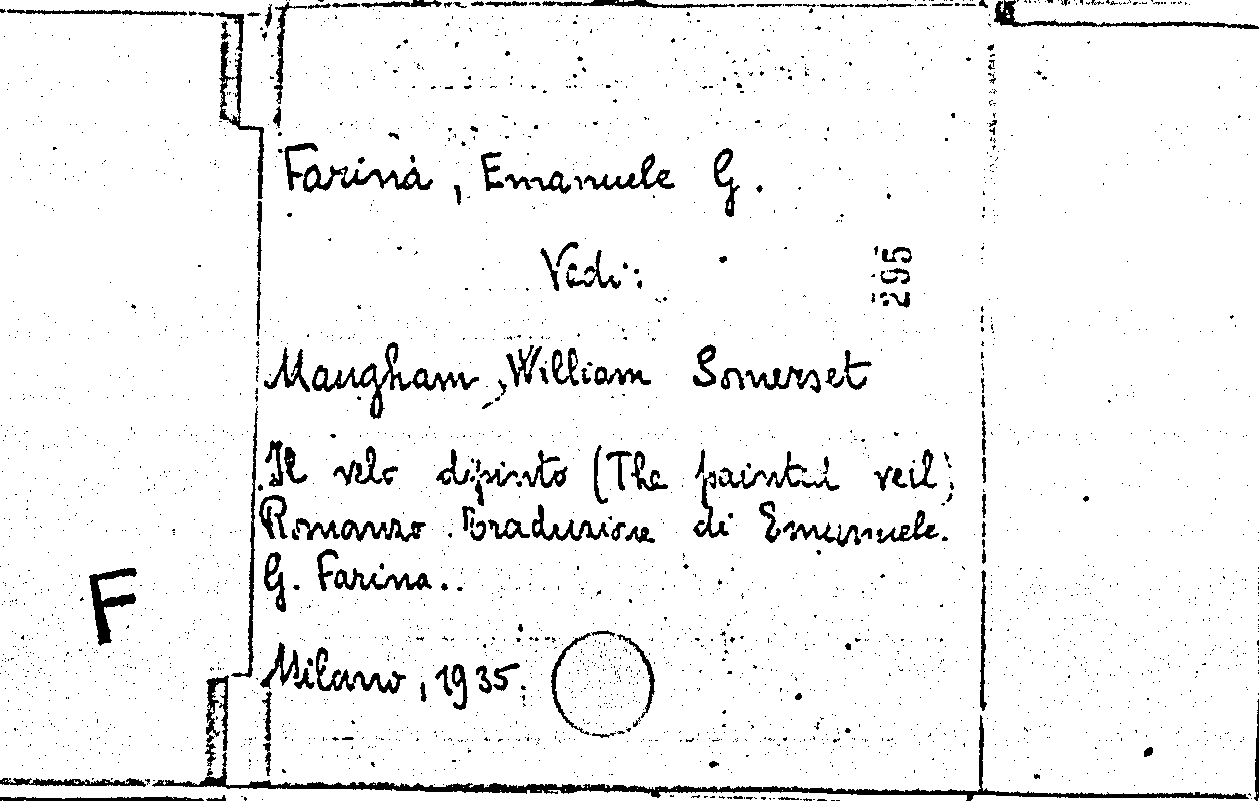 Farina, Emanuele G.
Vedi:
295
Maugham, William Somerset
Il velo dipinto (The painted veil)
Romanzo. Traduzione di Emanuele.
G. Farina..
F
Milano, 1935.